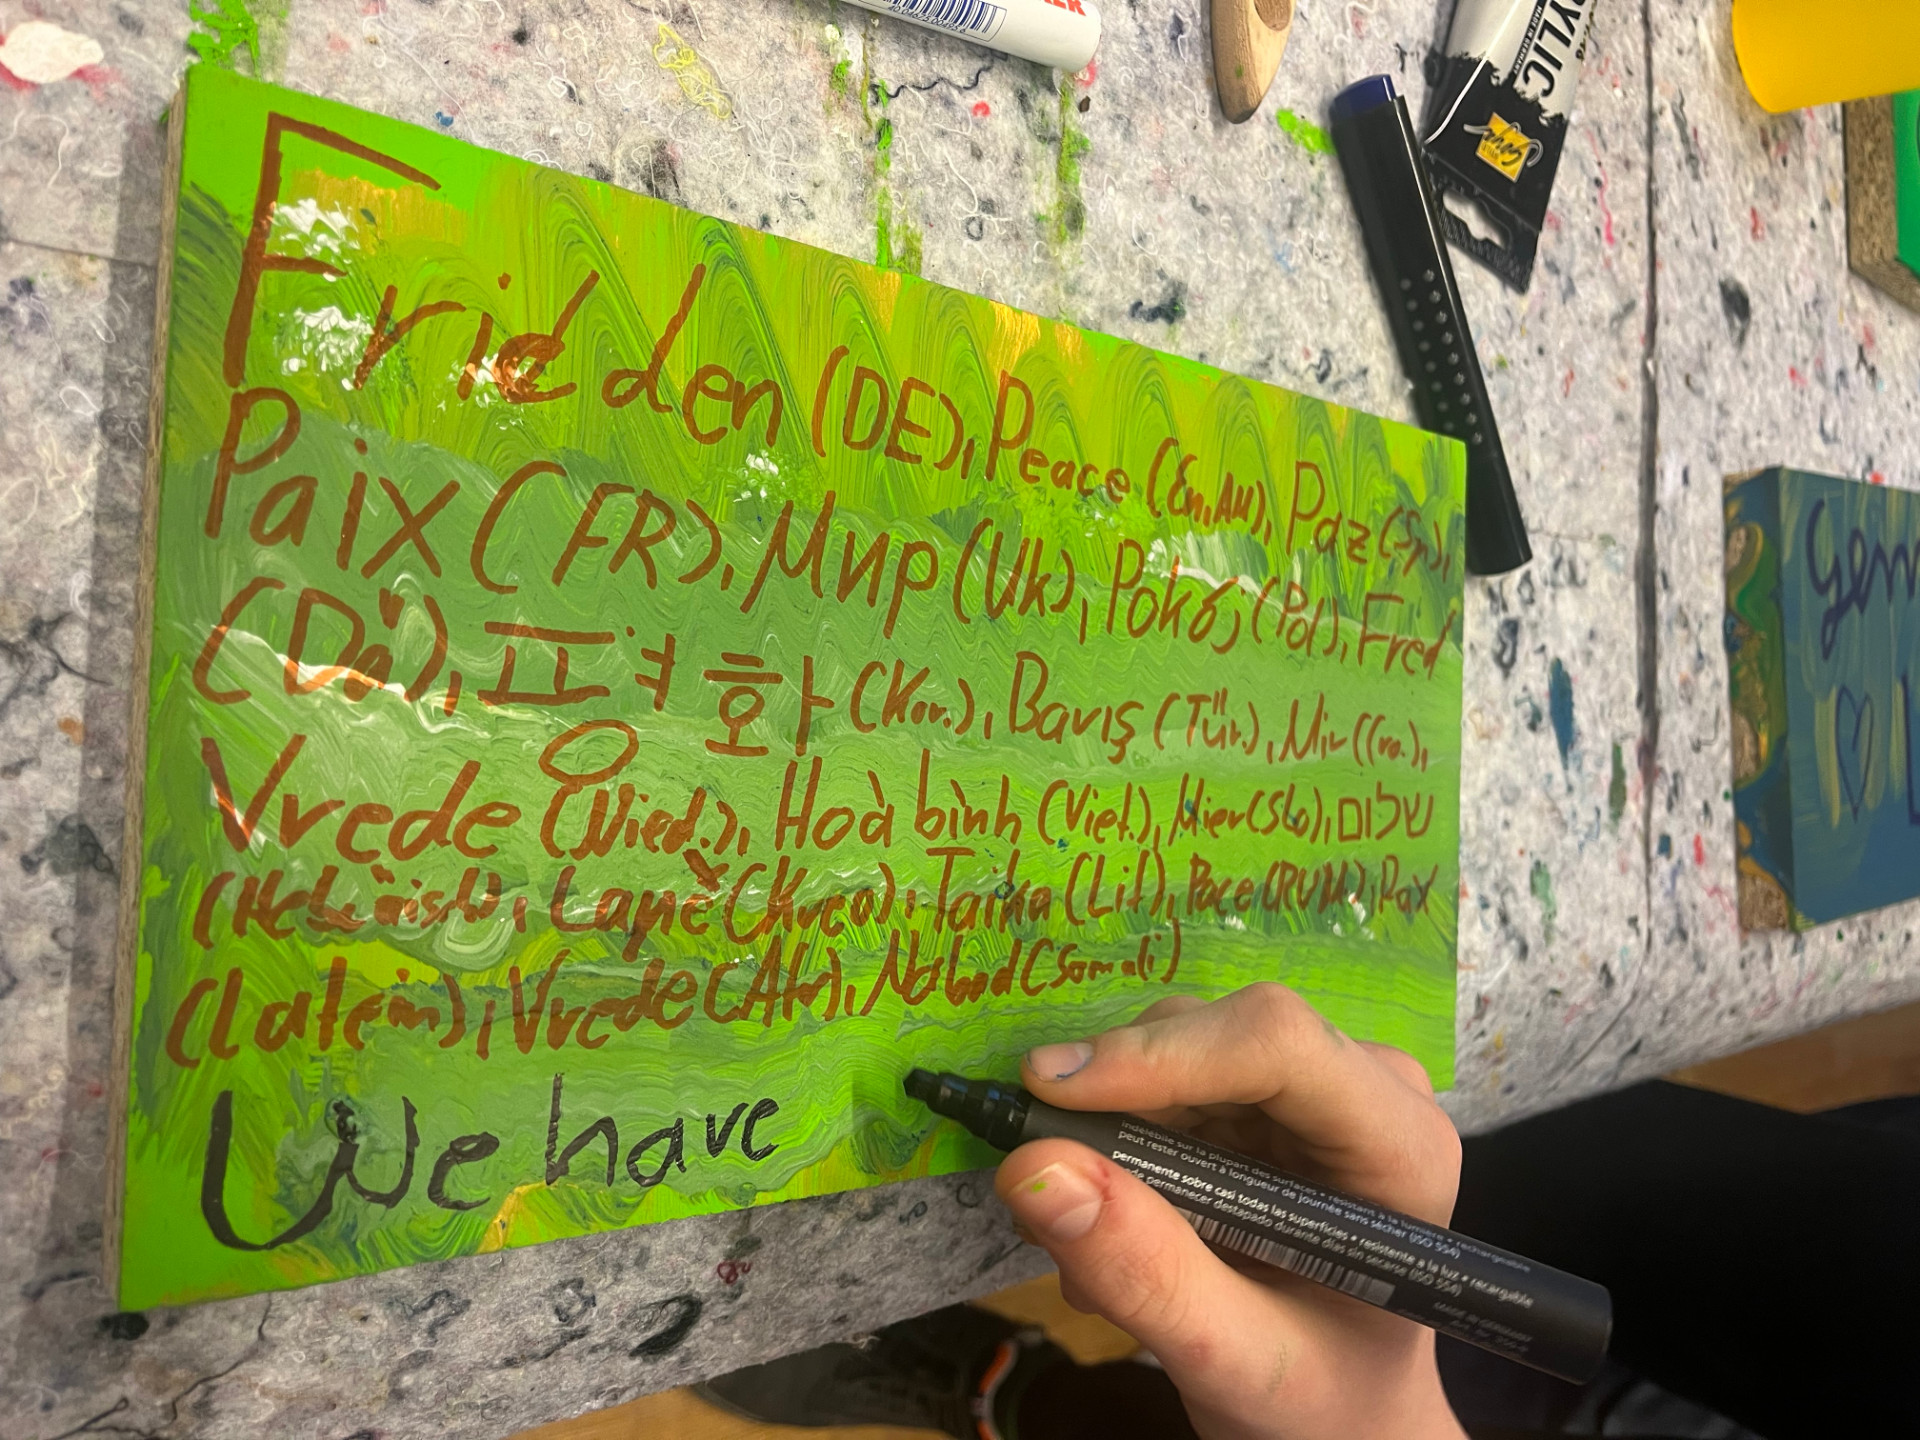 Frieden (DE), Peace (En,AU), Paz (Sp),
Paix (FR), Мир (Uk), Pokój (Pol), Fred
(Dä), 평화 (Kor.), Barış (Tür.), Mir (Cro.),
Vrede (Nied.), Hoà bình (Viet.), Mier (Slo), שלום
(Hebräisch), Lapè (Krea), Taika (Lit), Pace (RUM), Pax
(latein), Vrede (Afr), Nabad (Somali)
We have
ACRYLIC
MADE IN GERMANY
Solo Goya
indélébile sur la plupart des surfaces • résistant à la lumière • rechargeable
peut rester ouvert à longueur de journée sans sécher (ISO 554)
permanente sobre casi todas las superficies • resistente a la luz • recargable
de permanecer destapado durante días sin secarse (ISO 554)
MADE IN GERMANY